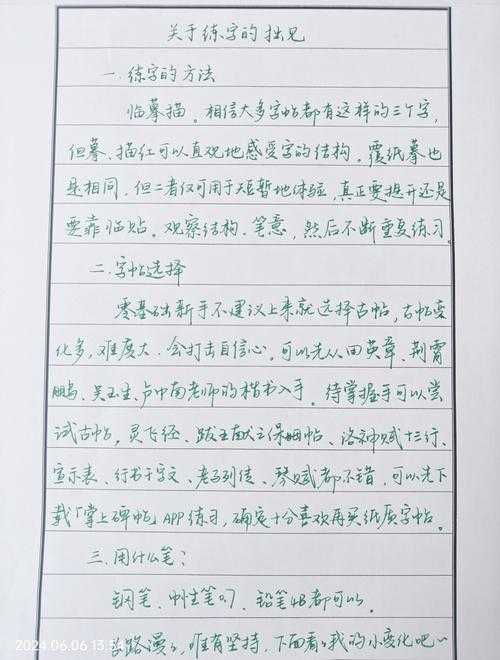 关于练字的拙见
一.练字的方法
临摹描。相信大多字帖都有这样的三个字,
但摹、描红可以直观地感受字的结构。覆纸摹也
是相同。但二者仅可用于短暂地体验,真正要提升还是
要靠临贴。观察结构、笔意,然后不断重复练习。
二.字帖选择
零基础新手不建议上来就选择古帖,古帖变
化多,难度大.会打击自信心。可以先从田英章、荆霄
鹏、吴玉生、卢中南老师的楷书入手。待掌握手可以尝
试古帖,灵飞经、跋王献之保姆帖、洛神赋十三行、
宣示表、行书千字文、老子列传、琴赋都不错,可以先下
载「掌上碑帖APP练习,确定十分喜欢再买纸质字帖。
三.用什么笔?
钢笔、中性笔0.7、铅笔4B都可以。
长路漫々,唯有坚持,下面看々我的小变化吧～
2024.06.06 13:54